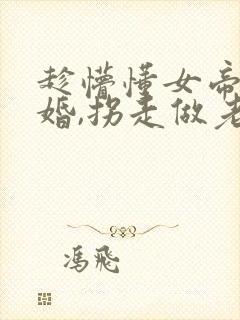 趁懵懂女帝
婚,拐走做老
冯飞